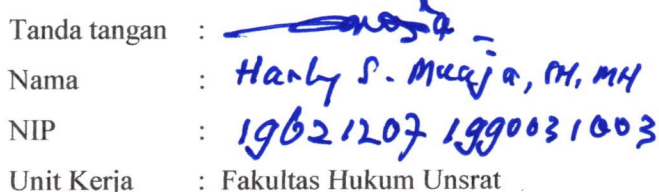 Tanda tangan :
Nama : Harly S. Muaja, SH, MH
NIP : 19621207 199003 1 003
Unit Kerja : Fakultas Hukum Unsrat